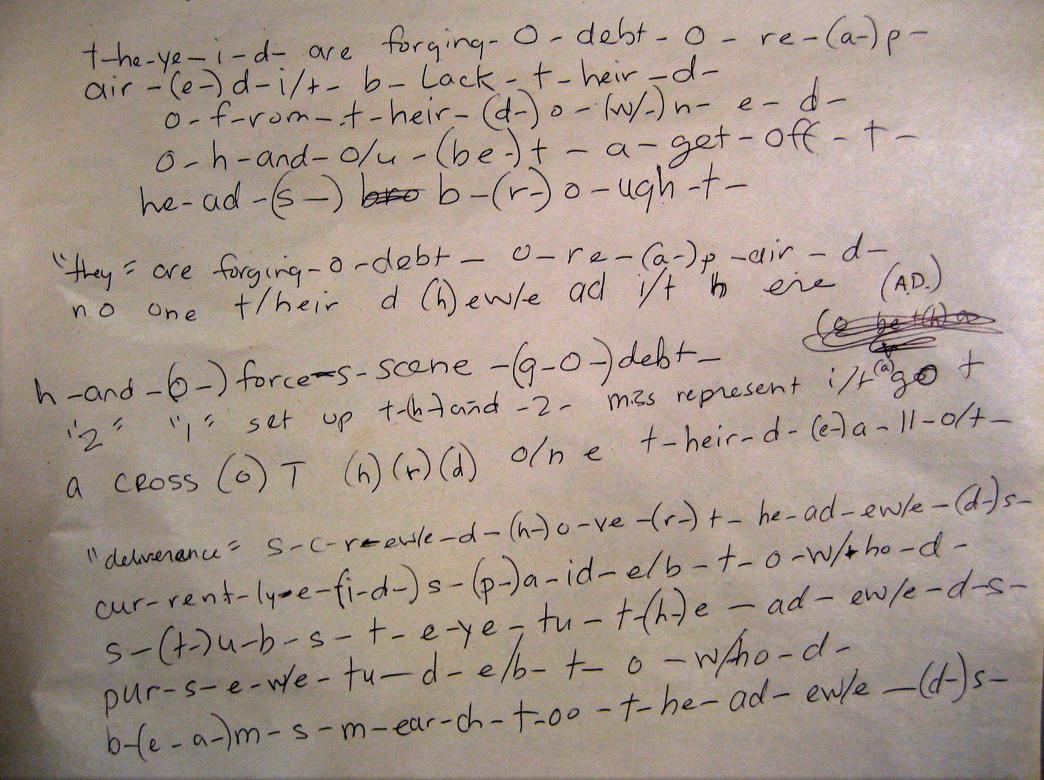 t-he-ye-i-d- are forging- O- debt- O- re-(a-)p-
air-(e-)d-i/t- b- Lack- t-heir-d-
o-f-rom-t-heir-(d-)o-(w/-)n- e-d-
o-h-and-o/u-(be-)t-a-get-off-t-
he-ad-(s-) b-(r-)o-ugh-t-
"they" are forging-o-debt- o-re-(a-)p-air-d-
no one t/heir d (h) ew/e ad i/t h ere (A.D.)
h-and-(o-)force-s-scene-(g-o-)debt-
"2" "1" set up t-(h-)and-2- mzs represent i/t (a) go t
a CROSS (o) T (h) (r) (d) o/n e t-heir-d-(e-)a-ll-o/t-
"deliverance" s-c-r-ew/e-d-(h-)o-ve-(r-)t-he-ad-ew/e-(d-)s-
cur-rent-ly-e-fi-d-)s-(p-)a-id-e/b-t-o-w/ho-d-
s-(t-)u-b-s-t-e-ye-tu-t-(h-)e-ad-ew/e-d-s-
pur-s-e-w/e-tu-d-e/b-t-o-w/ho-d-
b-(e-a-)m-s-m-ear-ch-t-oo-t-he-ad-ew/e-(d-)s-